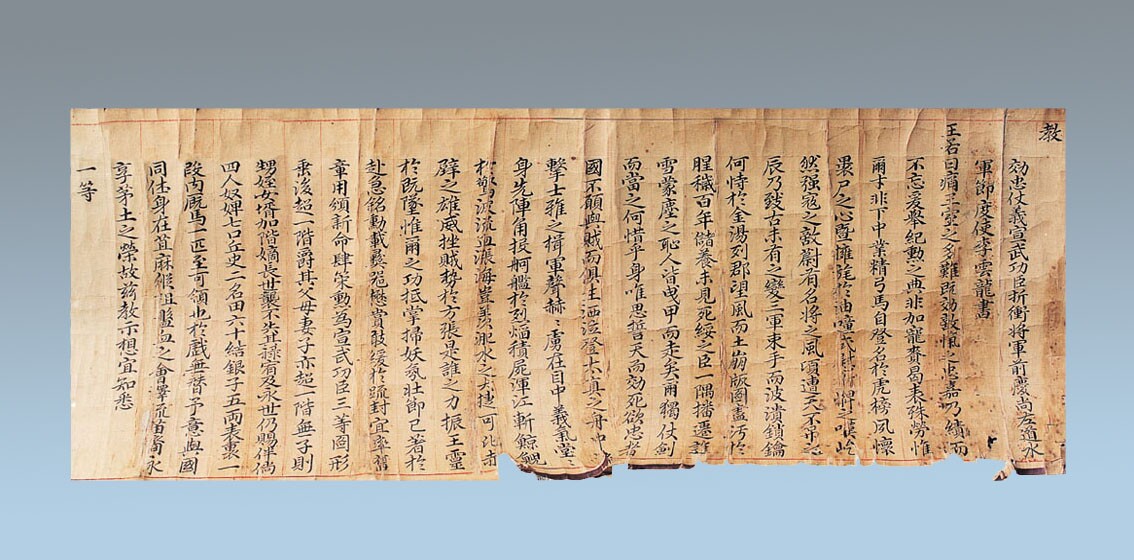 教
効忠仗義宣武功臣折衝將軍前慶尚左道水
軍節度使李雲龍書
王若曰痛王室之多難旣効敵愾之忠嘉乃績而
不忘爰擧紀勳之典非加寵賚曷表殊勞惟
爾才非下中業精弓馬自登名於虎榜夙懷
裹尸之心曁擁旄於
然强寇之敵蔚有名將之風頃遭天不弔之
辰乃致古未有之變三軍束手而波潰鎖鑰
何恃於金湯列郡望風而土崩版圖盡汚於
腥穢百年儲養未見死綏之臣一隅播遷
雪蒙塵之恥人皆曳甲而走矣爾獨仗劍
而當之何惜乎身唯思誓天而効死欲忠者
國不顚與賊而俱生洒泣登太眞之舟中
擊士雅之楫軍聲赫々虜在目中義氣堂々
身先陣角揋舸艦於列焰積屍渾江斬鯨鯢
於驚波流血漲海豈羨淝水之大捷可比赤
壁之雄威挫賊勢於方張是誰之力振王靈
於旣墜惟爾之功抵掌掃妖氛壯節已著於
赴急銘勳載彝器懋賞敢緩於疏封宜率舊
章用頒新命肆策勳爲宣武功臣三等圖形
垂後超一階爵其父母妻子亦超一階無子則
甥姪女壻加階嫡長世襲不失其祿宥及永世仍賜伴倘
四人奴婢七口丘史二名田六十結銀子五兩表裏一
段內廐馬一匹至可領也於戲無替予意與國
同休身在苴麻縱阻盤血之會澤流苗裔永
享茅土之榮故玆敎示想宜知悉
一等